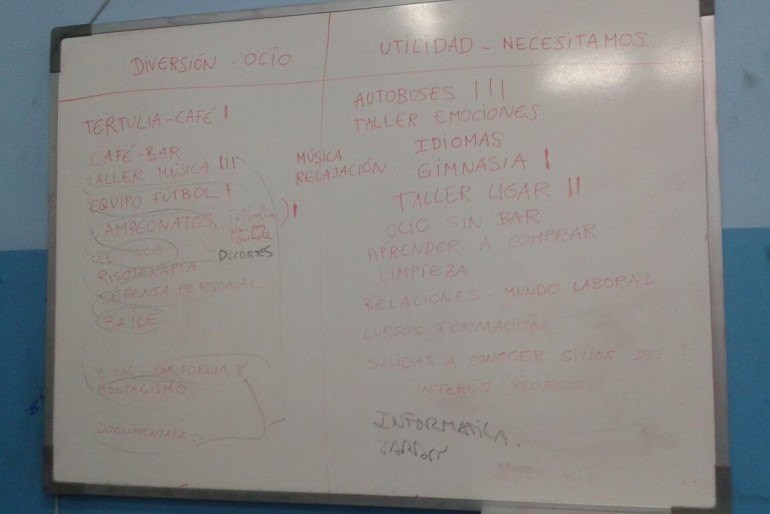 DIVERSIÓN - OCIO
TERTULIA - CAFÉ I
CAFÉ - BAR
TALLER MÚSICA III
EQUIPO FÚTBOL I
CAMPEONATOS
I
PETANCA
DEPORTES
RISOTERAPIA
DEFENSA PERSONAL
BAILE
FORUM
MONTAÑISMO
DOCUMENTALES
UTILIDAD - NECESITAMOS.
AUTOBUSES III
TALLER EMOCIONES
IDIOMAS
MÚSICA
RELAJACIÓN
GIMNASIA I
TALLER LIGAR II
OCIO SIN BAR
APRENDER A COMPRAR
LIMPIEZA
RELACIONES - MUNDO LABORAL
CURSOS FORMACIÓN
SALIDAS A CONOCER SITIOS
INTERÉS RECURSOS
INFORMATICA.